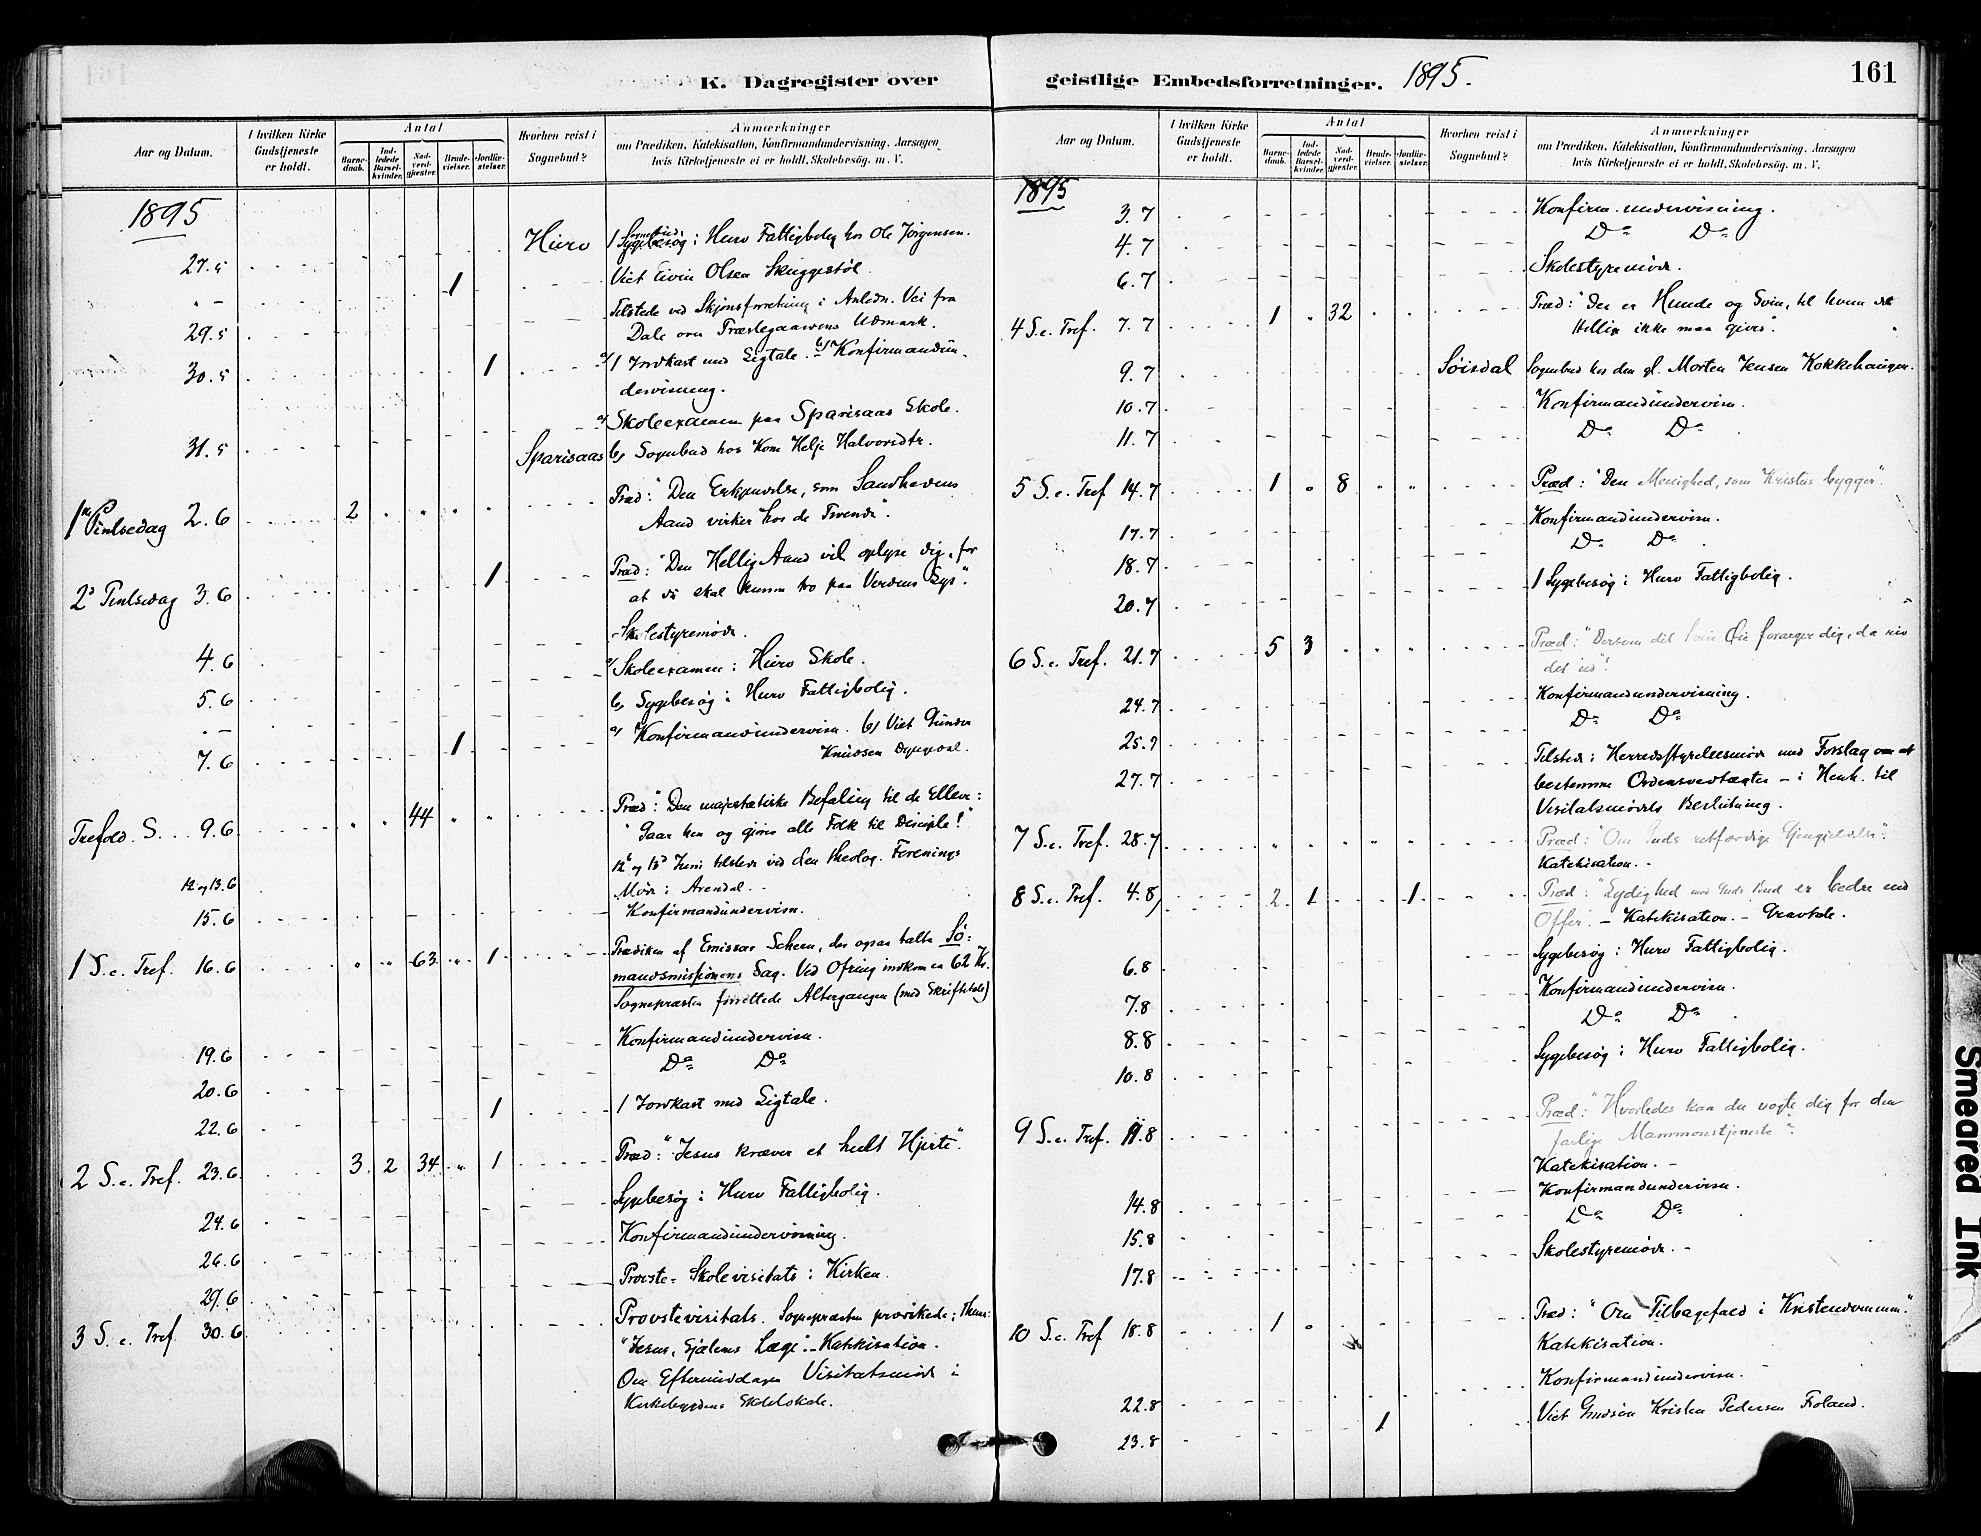 K. Dagregister over
Aar og Datum.
I hvilken Kirke Gudstjeneste er holdt.
Antal
Barnedaab.
Indledede Barselkvinder.
Nadverdgjæster.
Brudevielser.
Jordfæstelser.
Hvorhen reist i Sognebud?
Anmærkninger
om Prædiken, Katekisation, Konfirmandundervisning, Aarsagen
hvis Kirketjeneste ei er holdt, Skolebesøg. m. V.
1895
27.5 Hiero 1 Sygebesøg i Huro Fattigbolig hos Ole Jørgensen.
" – 1 Viet Eivin Olsen Skuggestøl.
29.5 Tilstede ved Skjønsforretning i Anledn. Vei fra
Dale over Præstegaardens Udmark.
30.5 1 a) 1 Jordkast med Ligtale. b) Konfirmandun-
dervisning.
31.5 a) Skoleexamen paa Sparisaas Skole.
Sparisaas b) Sognebud hos Kone Helje Halvorsdtr.
1ste Pintsedag 2.6 2 " " " " Præd: "Den Erkjendelse, som Sandhedens
Aand virker hos de Troende".
2d Pintsedag 3.6 1 Præd: "Den Hellig Aand vil oplyse dig, for
at du skal kunne tro paa Verdens Lys".
4.6 Skolestyremøde.
5.6 a) Skoleexamen i Hiero Skole.
" – b) Sygebesøg i Huro Fattigbolig.
7.6 1 a) Konfirmandundervisn. b) Viet Gunder
Knudsen
Trefold. S. 9.6 " " 44 " " Præd: "Den majestætiske Befaling til de Elleve:
"Gaar hen og gjører alle Folk til Disciple!"
12 og 13.6 12te og 13d Juni tilstede ved den theolog. Forenings
Møde i Arendal. –
15.6 Konfirmandundervisn.
1 S. e. Tref. 16.6 " " 63 " 1 Prædiken af Emissær Scheen, der ogsaa talte Sø-
mandsmissionens Sag. Ved Ofring indkom ca 62 Kr.
Sognepræsten forrettede Altergangen (med Skriftetale)
19.6 Konfirmandundervisn.
20.6 Do Do
22.6 1 1 Jordkast med Ligtale.
2 S. e. Tref. 23.6 3 2 34 " 1 Præd: "Jesus kræver et helt Hjerte".
24.6 Sygebesøg i Huro Fattigbolig.
26.6 Konfirmandundervisning.
29.6 Provste-Skolevisitats i Kirken.
3 S. e. Tref. 30.6 Provstevisitats. Sognepræsten prædikede; Thema:
"Jesus, Sjælens Læge". – Katekisation.
Om Eftermiddagen Visitatsmøde i
Kirkebygdens Skolelokale.
geistlige Embedsforretninger. 1895.
161
Aar og Datum.
I hvilken Kirke Gudstjeneste er holdt.
Antal
Barnedaab.
Indledede Barselkvinder.
Nadverdgjæster.
Brudevielser.
Jordfæstelser.
Hvorhen reist i Sognebud?
Anmærkninger
om Prædiken, Katekisation, Konfirmandundervisning, Aarsagen
hvis Kirketjeneste ei er holdt, Skolebesög. m. V.
1895
3.7 Konfirm.undervisning.
4.7 Do Do
6.7 Skolestyremøde.
4 S. e. Tref. 7.7 1 " 32 Præd: "Der er Hunde og Svin, til hvem det
Hellige ikke maa gives".
9.7 Søisdal Sognebud hos den gl. Morten Jensen Kokkehaugen.
10.7 Konfirmandundervisn.
11.7 Do Do
5 S. e. Tref 14.7 1 " 8 " " Præd: "Den Menighed, som Kristus bygger".
17.7 Konfirmandundervisn.
18.7 Do Do
20.7 1 Sygebesøg i Huro Fattigbolig.
6 S. e. Tref. 21.7 5 3 " " " Præd: "Dersom dit høire Øie forarger dig, da riv
det ud".
24.7 Konfirmandundervisning.
25.7 Do Do
27.7 Tilstede i Herredsstyrelsesmøde med Forslag om at
bestemme Ordensvedtægter – i Henh. til
Visitatsmødets Beslutning.
7 S. e. Tref. 28.7 " " " " " Præd: "Om Guds retfærdige Gjengjeldelse".
Katekisation. –
8 S. e. Tref. 4.8 2 1 1 Præd: "Lydighed mod Guds Bud er bedre end
Offer. – Katekisation. – Gravtale.
6.8 Sygebesøg i Huro Fattigbolig.
7.8 Konfirmandundervisn.
8.8 Do Do
10.8 Sygebesøg i Huro Fattigbolig.
9 S. e. Tref. 11.8 Præd: "Hvorledes kan du vogte dig for den
farlige Mammonstjeneste".
Katekisation. –
14.8 Konfirmandundervisn.
15.8 Do Do
17.8 Skolestyremøde. –
10 S. e. Tref 18.8 1 " Præd: "Om Tilbagefald i Kristendommen".
Katekisation.
22.8 Konfirmandundervisn.
23.8 1 Viet Kristen Pedersen Froland.
Smeared Ink